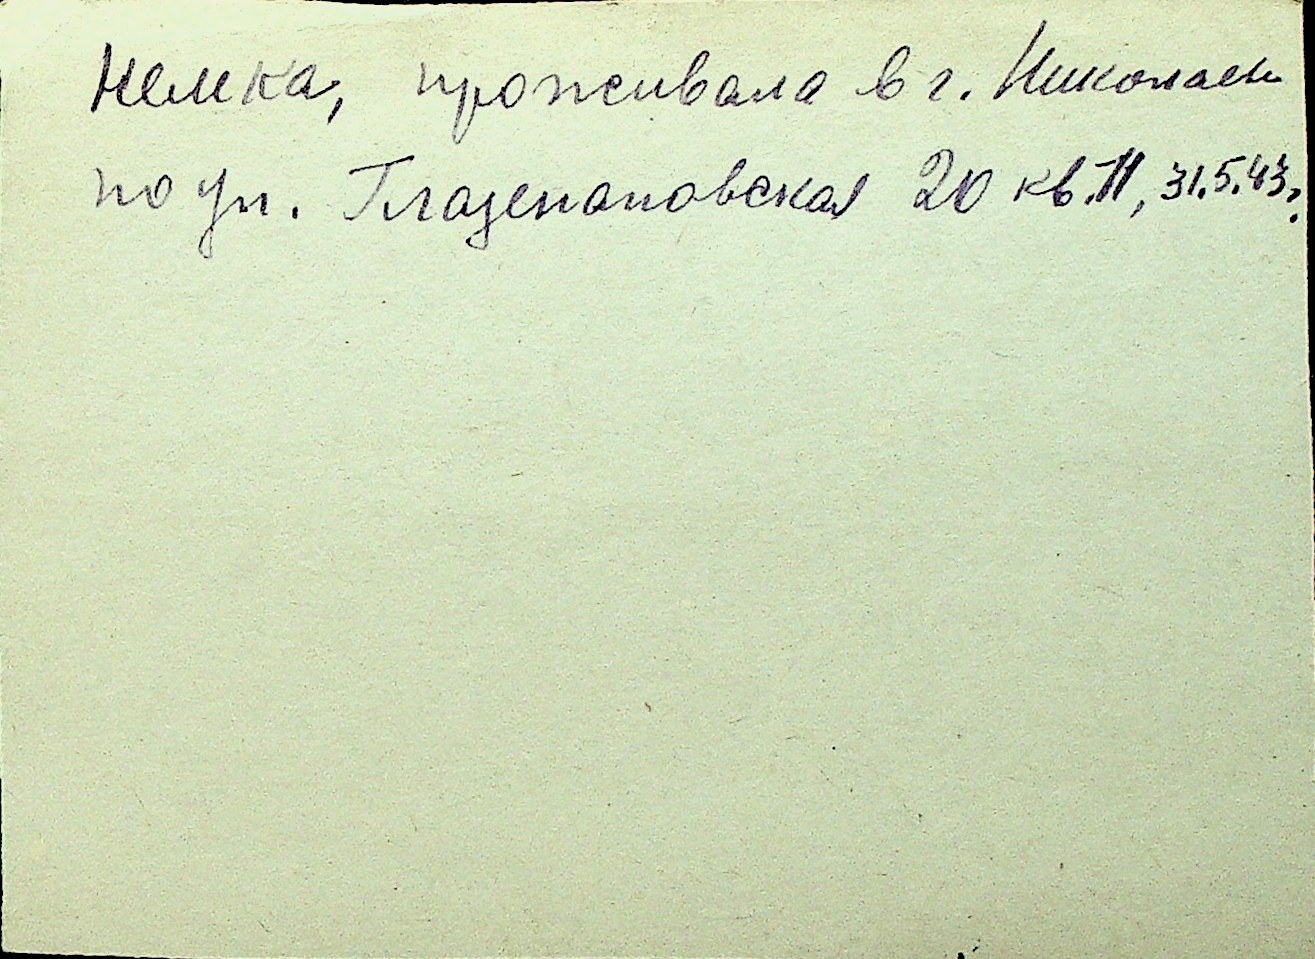 Немка, проживала в г. Николаеве
по ул. Глазенаповская 20 кв. 11, 31.5.43г.